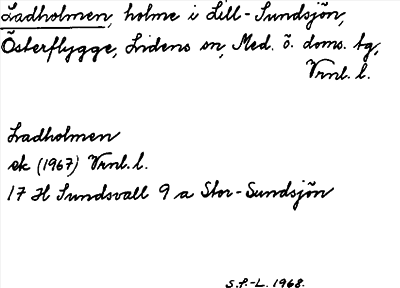 Ladholmen, holme i Lill-Sundsjön,
Österflygge, Lidens sn, Med. ö. doms. tg,
Vrnl. l.
Ladholmen
ek (1967) Vrnl. l.
17 H Sundsvall 9 a Stor-Sundsjön
S.F.-L. 1968.